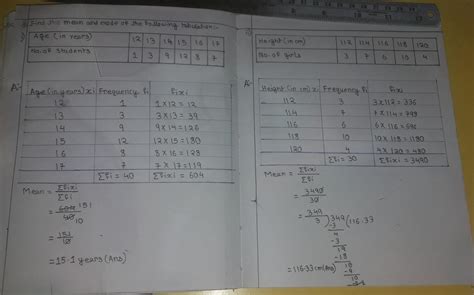 Find the mean and mode of the following tabulation:-
i)
Age (in years) 12 13 14 15 16 17
No. of students 1 3 9 12 8 7
A:-
Age (in years) xi Frequency fi fixi
12 1 1×12 = 12
13 3 3×13 = 39
14 9 9×14 = 126
15 12 12×15 = 180
16 8 8×16 = 128
17 7 7×17 = 119
Σfi = 40 Σfixi = 604
Mean = Σfixi
Σfi
= 604 151
40 10
= 151
10
= 15.1 years (Ans)
Height (in cm) 112 114 116 118 120
No. of girls 3 7 6 10 4
A:-
Height (in cm) xi Frequency fi fixi
112 3 3×112 = 336
114 7 7×114 = 798
116 6 6×116 = 696
118 10 10×118 = 1180
120 4 4×120 = 480
Σfi = 30 Σfixi = 3490
Mean = Σfixi
Σfi
= 3490
30
= 349
3
3)349(116.33
-3
4
-3
19
-18
10
-9
10
= 116.33 cm (Ans)